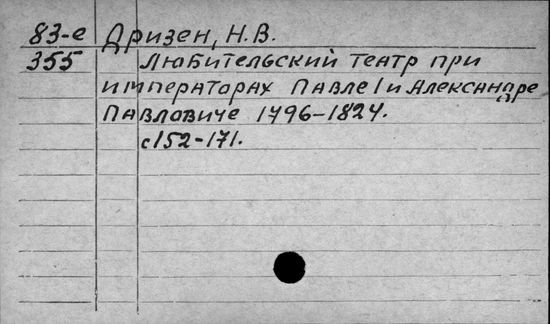 83-е Дризен, Н.В.
355 Любительский театр при
императорах Павле I и Александре
Павловиче 1796-1824.
с152-171.